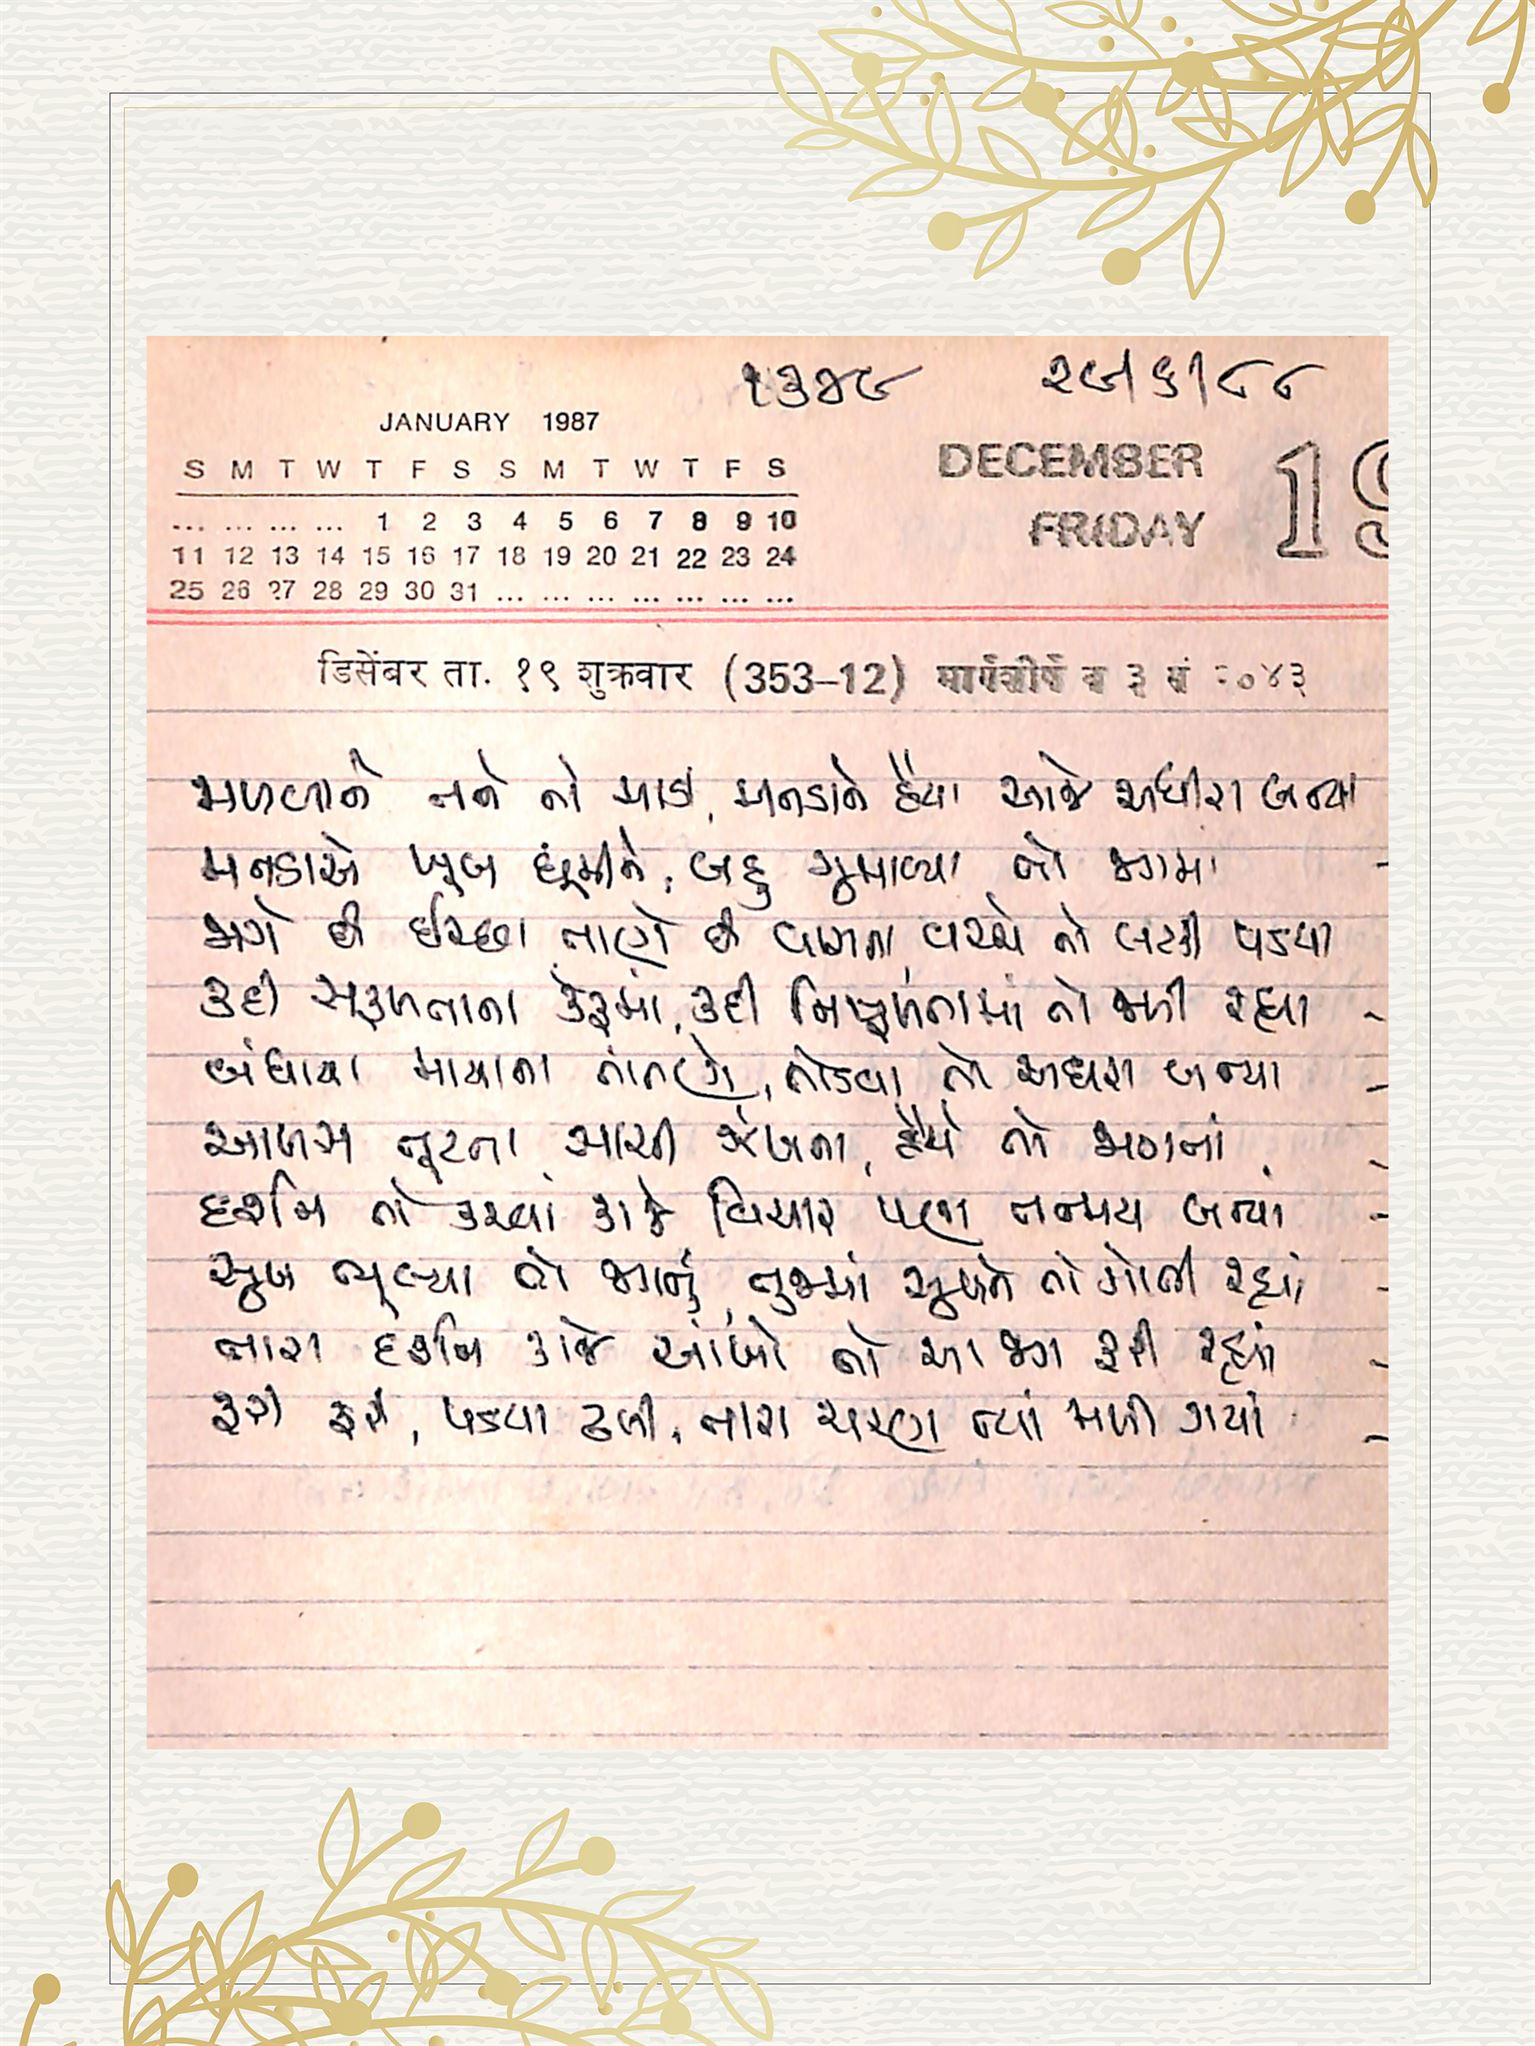 ૧૩૪૯ ૨૯|૬|૮૮
JANUARY 1987
S M T W T F S S M T W T F S
... ... ... ... 1 2 3 4 5 6 7 8 9 10
11 12 13 14 15 16 17 18 19 20 21 22 23 24
25 26 27 28 29 30 31 ... ... ... ... ... ... ...
DECEMBER
FRIDAY
19
डिसेंबर ता. १९ शुक्रवार (353–12) मार्गशीर्ष व ३ सं २०४३
મળવાને તને તો માડી, મનડાને હૈયા આજે અધીરા બન્યા
મનડાએ ખૂબ ઘૂમીને, બહુ ઘુમાવ્યા તો જગમાં -
જાગે છે ઈચ્છા તાણે છે વાસના, વચ્ચે તો લટકી પડયા
કદી સફળતાના કેફમાં, કદી નિષ્ફળતામાં તો જળી રહ્યા -
બંધાયા માયાના તાંતણે, તોડવા તો અઘરા બન્યા -
આળસ લૂંટતા મારી ઝંખના, હૈયે તો -
દર્શન તો કરવાં કાજે વિચાર પણ તન્મય બન્યાં -
સુખ ભૂલ્યા તો જગનું, તુજમાં સુખને તો ગોતી રહ્યાં -
તારા દર્શન કાજે આંખો તો આ જગ ફરી રહ્યાં -
ફરી ફરી, પડયા ઢળી, તારા ચરણ ત્યાં મળી ગયાં -